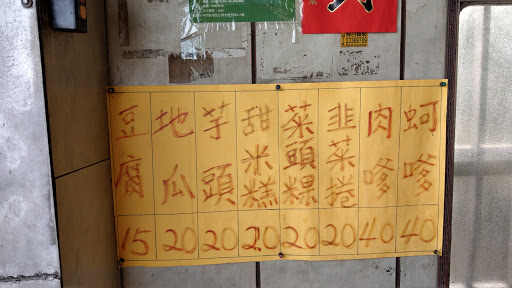 豆腐 15
地瓜 20
芋頭 20
甜米糕 20
菜頭粿 20
韭菜捲 20
肉嗲 40
蚵嗲 40